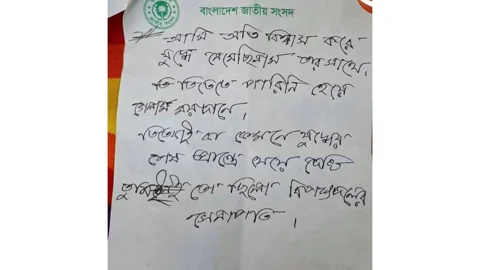 বাংলাদেশ জাতীয় সংসদ
আমি অতি বিশ্বাস করে
যুদ্ধে নেমেছিলাম তার সাথে,
জিততে পারিনি হেরে
গেলাম ময়দানে।
জিতবোই বা কেমনে যুদ্ধের
শেষ প্রান্তে যেয়ে দেখি
তুমিই তো ছিলে বিপক্ষদলের
সেনাপতি।